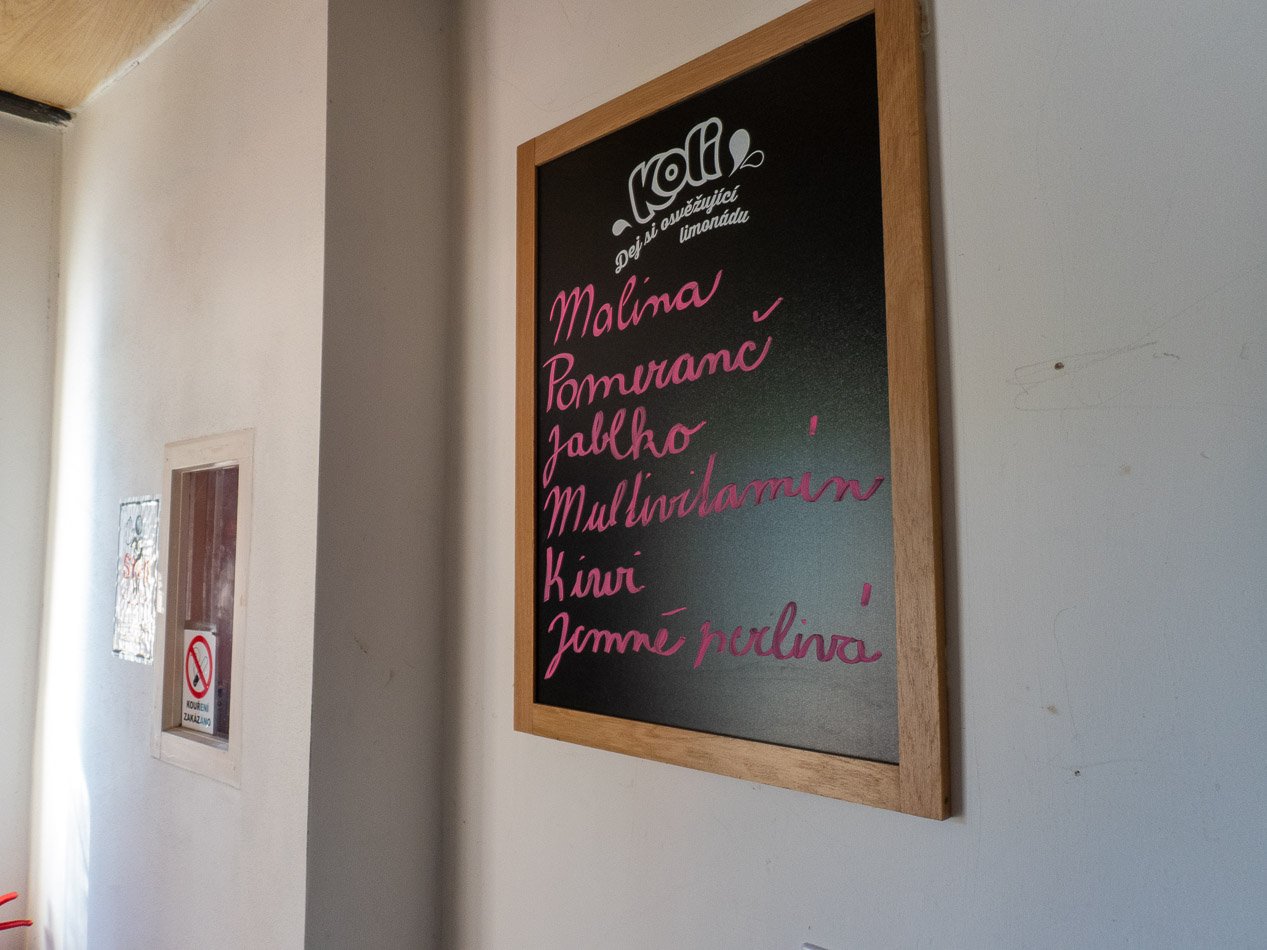 Koli
Dej si osvěžující
limonádu
Malina
Pomeranč
jablko
Multivitamín
Kiwi
Jemně perlivá
KOUŘENÍ
ZAKÁZÁNO